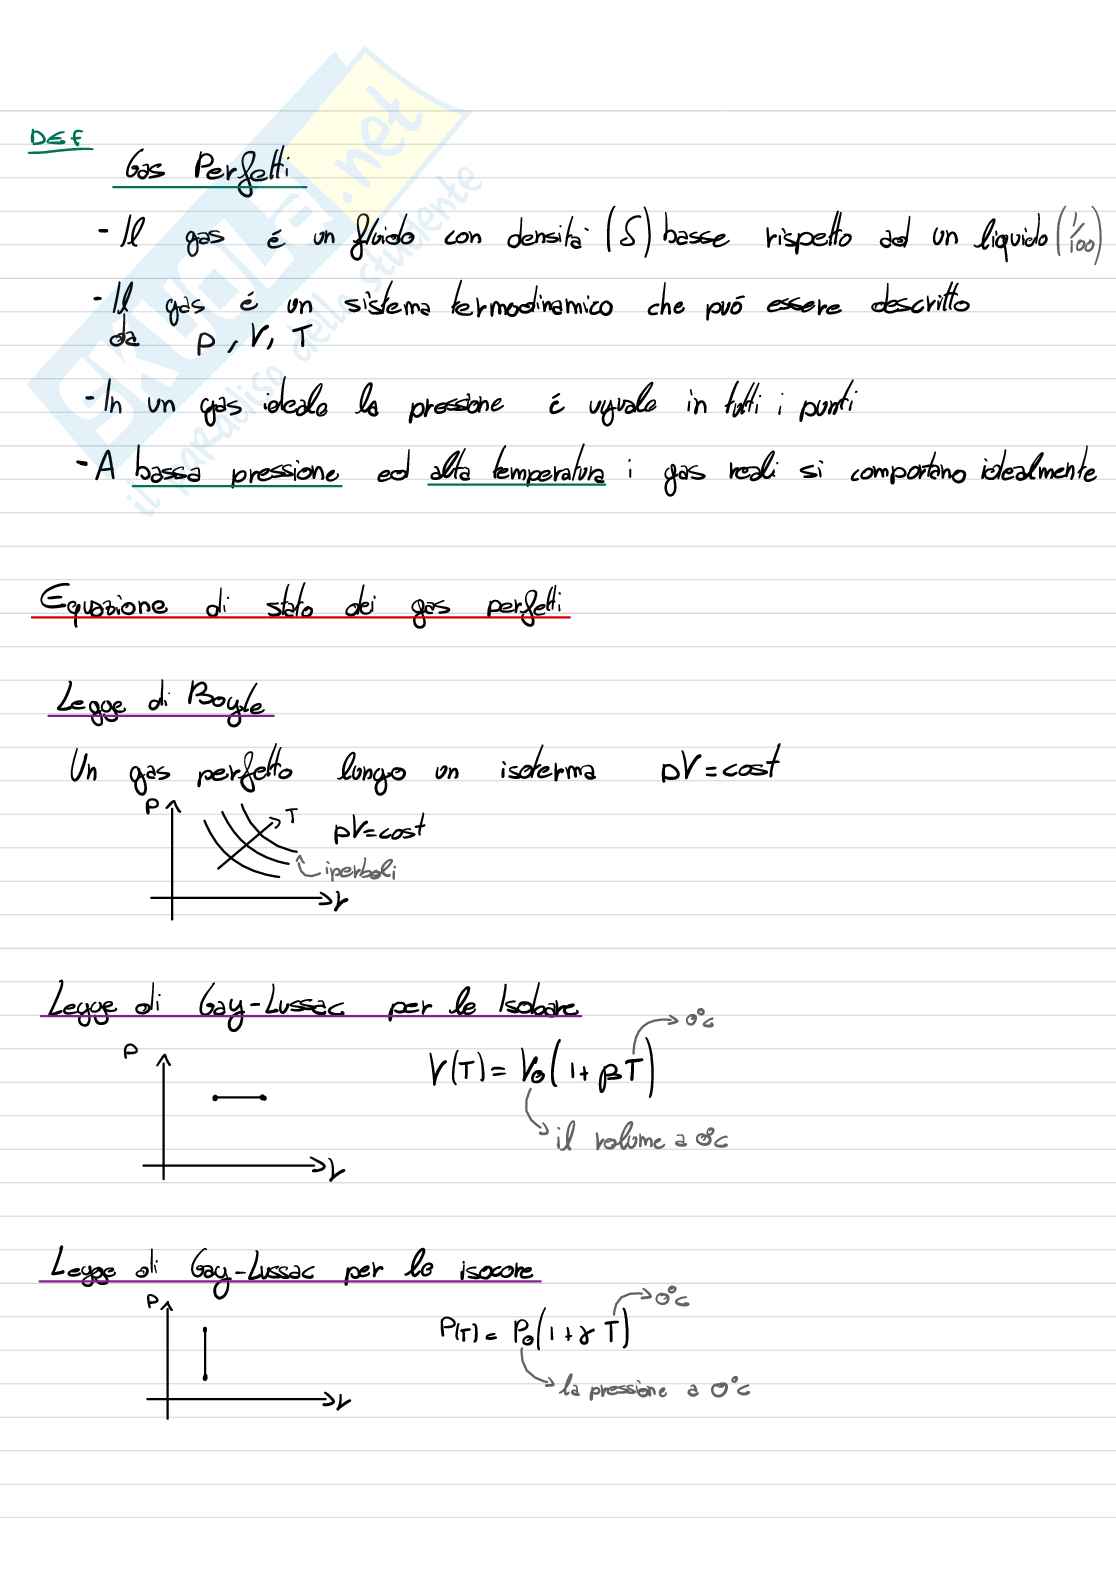 DEF
Gas Perfetti
- Il gas é un fluido con densitá (δ) basse rispetto ad un liquido (1/100)
- Il gas é un sistema termodinamico che puó essere descritto
da p, V, T
- In un gas ideale la pressione é uguale in tutti i punti
- A bassa pressione ed alta temperatura i gas reali si comportano idealmente
Equazione di stato dei gas perfetti
Legge di Boyle
Un gas perfetto lungo un isoterma pV=cost
P
T
pV=cost
iperboli
V
Legge di Gay-Lussac per le Isobare
0°C
P
V(T)= V₀(1+βT)
il volume a 0°C
V
Legge di Gay-Lussac per le isocore
0°C
P
P(T)= P₀(1+γT)
la pressione a 0°C
V
skuola.net
il paradiso dello studente